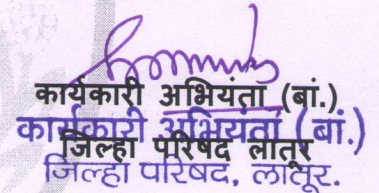 कार्यकारी अभियंता (बां.)
कार्यकारी अभियंता (बां.)
जिल्हा परिषद लातूर
जिल्हा परिषद, लातूर.